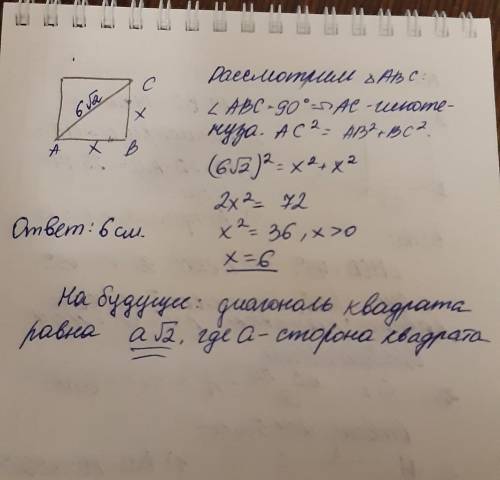 Рассмотрим △ABC:
∠ABC=90°⇒AC-гипоте-
нуза. AC² = AB²+BC².
C
6√2
x
A
x
B
(6√2)² = x²+x²
2x² = 72
x² = 36, x>0
x=6
Ответ: 6 см.
На будущее: диагональ квадрата
равна a√2, где a - сторона квадрата